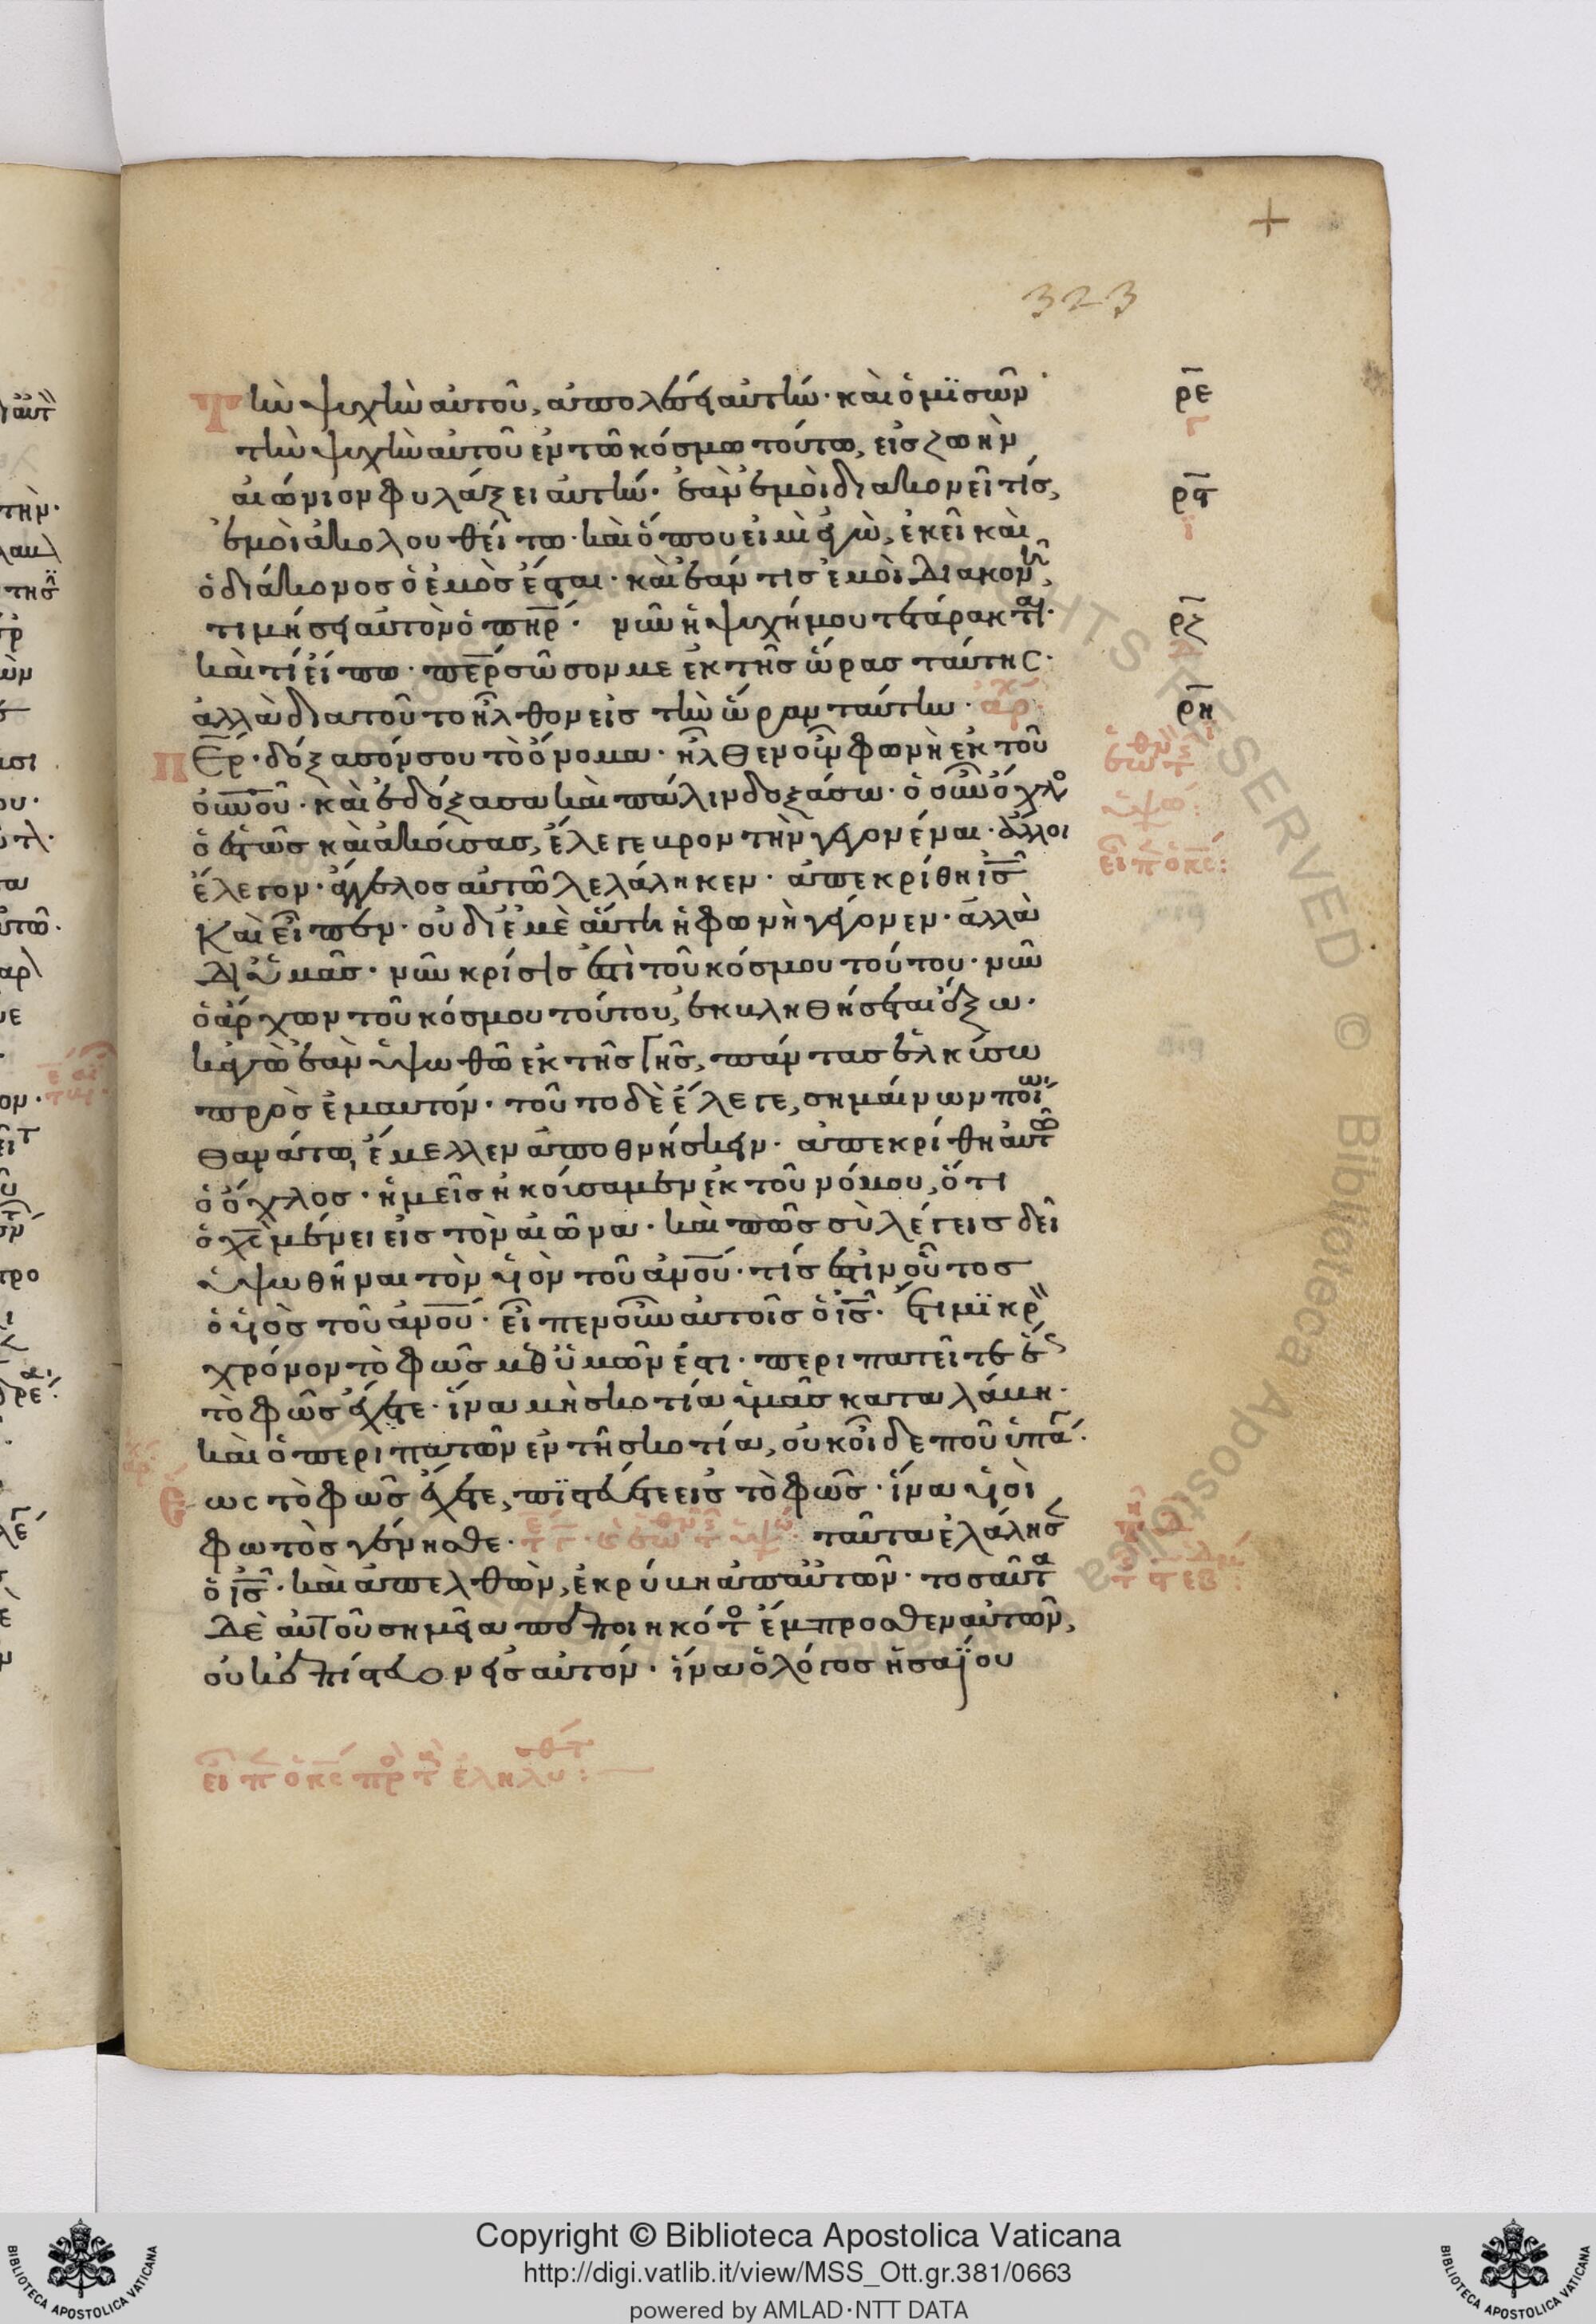 323
Τὴν ψυχὴν αὐτοῦ, ἀπολέσει αὐτήν· καὶ ὁ μισῶν
ρε
τὴν ψυχὴν αὐτοῦ ἐν τῶ κόσμω τούτω, εἰς ζωὴν
αἰώνιον φυλάξει αὐτήν· ἐὰν ἐμοὶ διακονεῖ τίς,
ρϛ
ἐμοὶ ἀκολουθείτω· καὶ ὅπου εἰμὶ ἐγὼ, ἐκεῖ καὶ
ὁ διάκονος ὁ ἐμὸς ἔσται· καὶ ἐάν τις ἐμοὶ διακονῆ,
τιμήσει αὐτὸν ὁ πηρ· νῦν ἡ ψυχή μου τετάρακται·
ρζ
καὶ τί εἴπω· περ σῶσον με ἐκ τῆς ὥρας ταύτης·
ἀλλὰ διατοῦτο ἦλθον εἰς τὴν ὥραν ταύτην·
ρη
Περ· δόξασόν σου τὸ ὄνομα· ἦλθεν οὖν φωνὴ ἐκ τοῦ
οὐνοῦ· καὶ ἐδόξασα καὶ πάλιν δοξάσω· ὁ οὖν ὄχλο
ὁ ἑστὼς καὶ ἀκούσας, ἔλεγε βροντὴν γεγονέναι· ἄλλοι
ἔλεγον· ἄγγελος αὐτῶ λελάληκεν· ἀπεκρίθη ις
Καὶ εἶπεν· οὐ δι ἐμὲ αὕτη ἡ φωνὴ γέγονεν· ἀλλὰ
δι ὑμᾶς· νῦν κρίσις ἐστὶ τοῦ κόσμου τούτου· νῦν
ὁ ἄρχων τοῦ κόσμου τούτου, ἐκβληθήσεται ἔξω·
κἀγὼ ἐὰν ὑψωθῶ ἐκ τῆς γῆς, πάντας ἑλκύσω
πρὸς ἐμαυτόν· τοῦτο δὲ ἔλεγε, σημαίνων ποίω
θανάτω, ἔμελλεν ἀποθνήσκειν· ἀπεκρίθη αὐτῶ
ὁ ὄχλος· ἡμεῖς ἠκούσαμεν ἐκ τοῦ νόμου, ὅτι
ὁ χς μένει εἰς τὸν αἰῶνα· καὶ πῶς σὺ λέγεις δεῖ
ὑψωθῆναι τὸν υἱὸν τοῦ ἀνου· τίς ἐστιν οὗτος
ὁ υἱὸς τοῦ ἀνου· εἶπεν οὖν αὐτοῖς ὁ ις· ἔτι μικρὸν
χρόνον τὸ φῶς μεθ ὑμῶν ἐστι· περιπατεῖτε ἕως
τὸ φῶς ἔχετε· ἵνα μὴ σκοτία ὑμᾶς καταλάβη·
καὶ ὁ περιπατῶν ἐν τῆ σκοτία, οὐκ οἶδε ποῦ ὑπά·
Ἕως τὸ φῶς ἔχετε, πιστεύετε εἰς τὸ φῶς· ἵνα υἱοὶ
φωτὸς γένησθε· ταῦτα ἐλάλησεν
ὁ ις· καὶ ἀπελθὼν, ἐκρύβη ἀπ αὐτῶν· τοσαῦτα
Δὲ αὐτοῦ σημεῖα πεποιηκότος ἔμπροσθεν αὐτῶν,
οὐκ ἐπίστευον εἰς αὐτόν· ἵνα ὁ λόγος ἡσαΐου
Copyright © Biblioteca Apostolica Vaticana
http://digi.vatlib.it/view/MSS_Ott.gr.381/0663
powered by AMLAD·NTT DATA